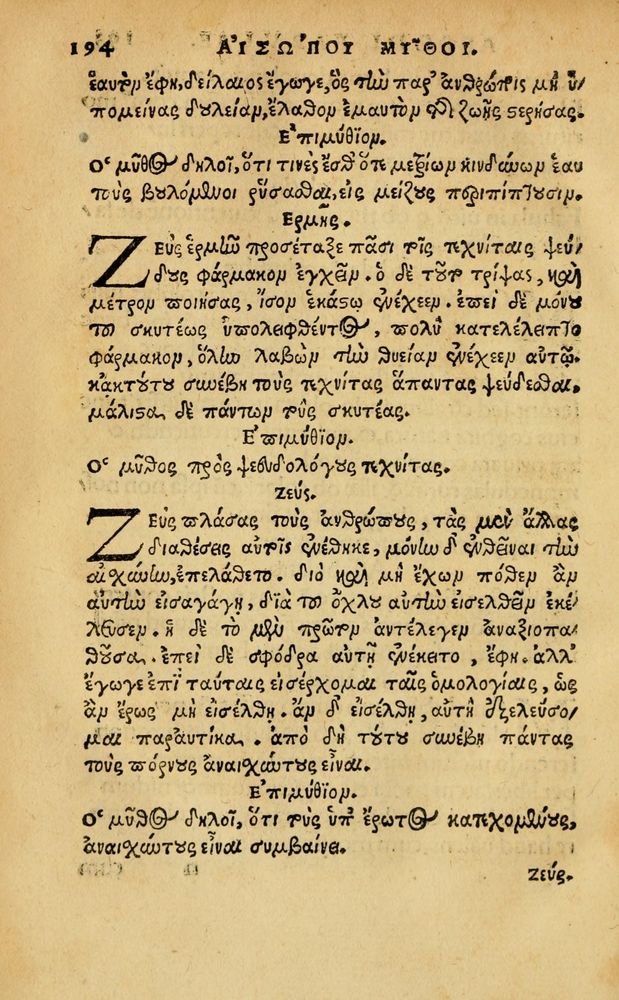 194 ΑΙΣΩΠΟΥ ΜΥΘΟΙ.
ἑαυτὸν ἔφη, δείλαιος ἔγωγε, ὃς τὴν παρ' ἀνθρώποις μὴ ὑ-
πομείνας δουλείαν, ἔλαθον ἐμαυτὸν καὶ ζωῆς στερήσας.
Ἐπιμύθιον.
Ὁ μῦθος δηλοῖ, ὅτι τινὲς ἔσθ' ὅτε μετρίων κινδύνων ἑαυ
τοὺς βουλόμενοι ῥύσασθαι, εἰς μείζους περιπίπτουσιν.
Ερμῆς.
ΖΕὺς ἑρμῇ προσέταξε πᾶσι τοῖς τεχνίταις ψεύ-
δους φάρμακον ἐγχεῖν. ὁ δὲ τοῦτον τρίψας, καὶ
μέτρον ποιήσας, ἴσον ἑκάστῳ ἐνέχεεν. ἐπεὶ δὲ μόνου
τοῦ σκυτέως ὑπολειφθέντος, πολὺ κατελέλειπτο
φάρμακον, ὅλην λαβὼν τὴν θυείαν ἐνέχεεν αὐτῷ.
κἀκ τούτου συνέβη τοὺς τεχνίτας ἅπαντας ψεύδεσθαι,
μάλιστα δὲ πάντων τοὺς σκυτέας.
Ἐπιμύθιον.
Ὁ μῦθος πρὸς ψευδολόγους τεχνίτας.
Ζεύς.
ΖΕὺς πλάσας τοὺς ἀνθρώπους, τὰς μὲν ἄλλας
διαθέσεις αὐτοῖς ἐνέθηκε, μόνην δ' ἐνθεῖναι τὴν
αἰσχύνην, ἐπελάθετο. διὸ καὶ μὴ ἔχων πόθεν ἂν
αὐτὴν εἰσαγάγῃ, διὰ τοῦ ὄχλου αὐτὴν εἰσελθεῖν ἐκέ-
λευσεν. ἡ δὲ τὸ μὲν πρῶτον ἀντέλεγεν ἀναξιοπα-
θοῦσα. ἐπεὶ δὲ σφόδρα αὐτῇ ἐνέκειτο, ἔφη. ἀλλ'
ἔγωγε ἐπὶ ταύταις εἰσέρχομαι ταῖς ὁμολογίαις, ὡς
ἂν ἔρως μὴ εἰσέλθῃ. ἂν δ' εἰσέλθῃ, αὐτὴ ἐξελεύσο-
μαι παραυτίκα. ἀπὸ δὴ τούτου συνέβη πάντας
τοὺς πόρνους ἀναισχύντους εἶναι.
Ἐπιμύθιον.
Ὁ μῦθος δηλοῖ, ὅτι τοὺς ὑπ' ἔρωτος κατεχομένους,
ἀναισχύντους εἶναι συμβαίνει.
Ζεύς.